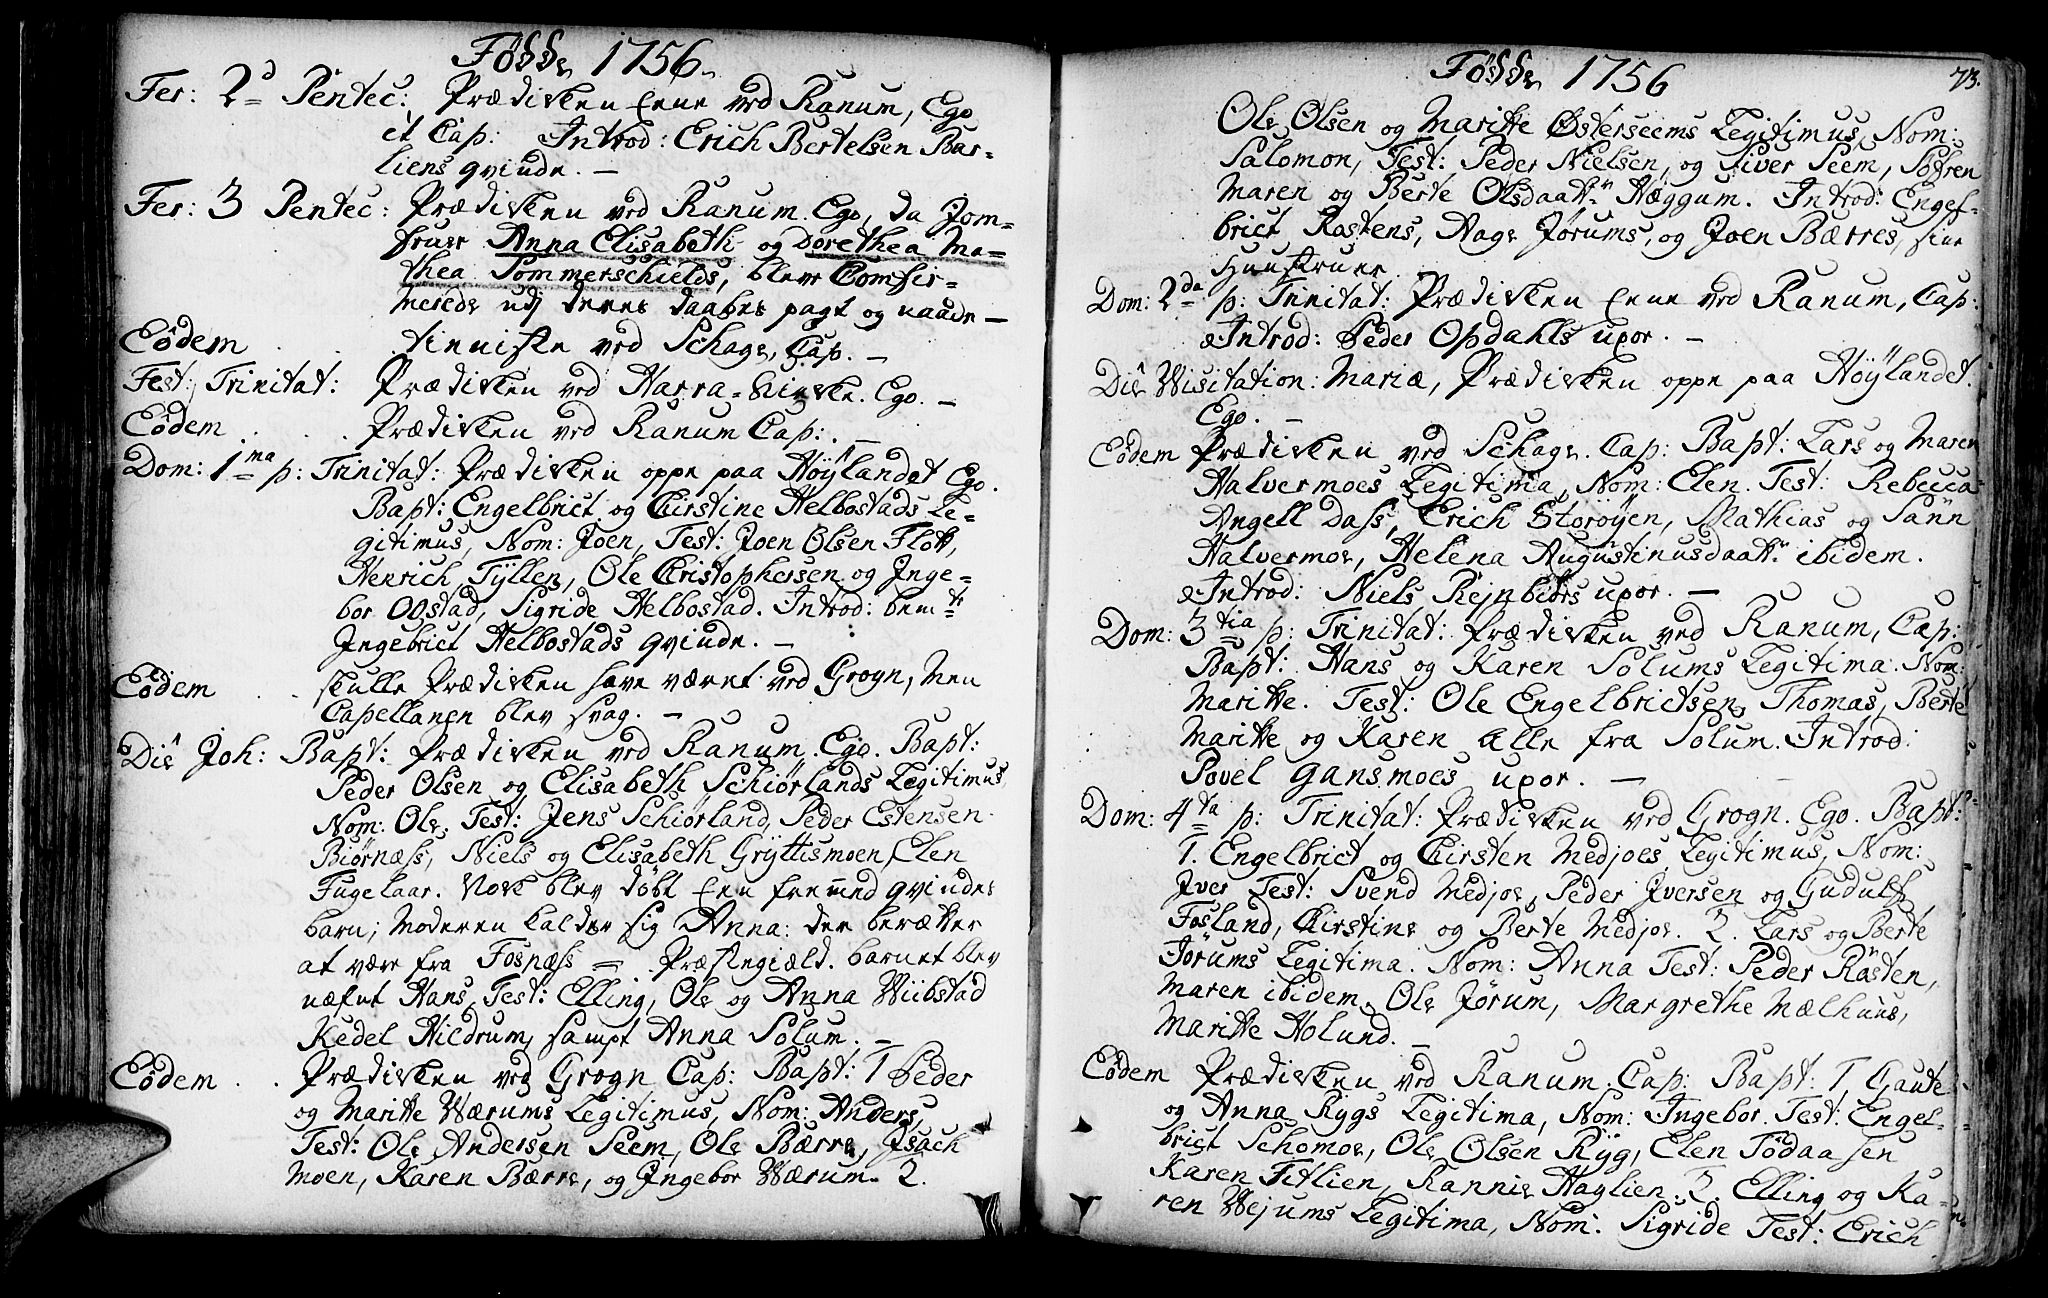 Födde 1756.
Fer: 2d Pentec: Prædicken Ene ved Ranum, Ego
et Cap: Introd: Erich Bertelsen Bar-
liens qvinde. —
Fer: 3 Pentec: Prædicken ved Ranum. Ego, da Jom-
fruer Anna Elisabeth og Dorethea Ma-
thea Sommerschields, bleve Comfir-
merede udj deres daabes pagt og naade —
Eödem . . . tienniste ved Schage, Cap. —
Fest: Trinitat: Prædicken ved Harra-Kircke. Ego. —
Eödem . . . Prædicken ved Ranum Cap: —
Dom: 1ma p: Trinitat: Prædicken oppe paa Höÿlandet Ego.
Bapt: Engelbrict og Chirstine Helbostads Le-
gitimus, Nom: Joen, Test: Joen Olsen Flott,
Henrich Tÿllen, Ole Christophersen og Inge-
bor Opstad, Sigride Helbostad. Introd: bemte
Ingebrict Helbostads qvinde. —
Eödem . . skulle Prædicken have været ved Grogn, Men
Capellanen blev svag. —
Die Joh: Bapt: Prædicken ved Ranum. Ego. Bapt:
Peder Olsen og Elisabeth Schiörlands Legitimus
Nom: Ole, Test: Jens Schiörland, Peder Estensen
Biörnæss, Niels og Elisabeth Grÿttismoen, Elen
Fugelaar. Nock blev döbt Een fremmed qvindes
barn; Moderen kalder sig Anna: der beretter
at være fra Fosnæss — Præstegiæld. barnet blev
næfnt Hans, Test: Elling, Ole og Anna Wiibstad
Kedel Hildrum, sampt Anna Solum. —
Eödem . . Prædicken ved Grogn Cap: Bapt: 1 Peder
og Maritte Wærums Legitimus, Nom: Anders,
Test: Ole Andersen Seem, Ole Bærre, Isach
Moen, Karen Bærre, og Ingebor Wærum. 2.
Födde 1756
73.
Ole Olsen og Maritte Österseems Legitimus, Nom:
Salomon, Test: Peder Nielsen, og Siver Seem, Söfren
Maren og Berte Olsdaattr Hæggum. Introd: Engel-
brict Rostens, Aage Jörums, og Joen Bærres, sine
Huustruer.
Dom: 2da p: Trinitat: Prædicken Ene ved Ranum, Cap:
Introd: Peder Opdahls uxor. —
Die Wisitation: Mariæ, Prædicken oppe paa Höÿlandet.
Ego. —
Eödem Prædicken ved Schage. Cap: Bapt: Lars og Maren
Halvermoes Legitima, Nom: Elen. Test: Rebecca
Angell Dass, Erich Storöyen, Mathias og Sann
Halvermoe, Helena Augustinusdaattr ibidem.
Introd: Niels Rejnbiörs uxor. —
Dom: 3tia p: Trinitat: Prædicken ved Ranum, Cap:
Bapt: Hans og Karen Solums Legitima. Nom:
Maritte. Test: Ole Engelbrictsen, Thomas, Berte
Maritte og Karen alle fra Solum. Introd:
Povel Gansmoes uxor. —
Dom: 4ta p: Trinitat: Prædicken ved Grogn. Ego. Bapt:
1. Engelbrict og Chirsten Medjoes Legitimus, Nom:
Iver Test: Svend Medjoe, Peder Iversen og Gudulf
Fosland, Chirstine og Berte Medjoe. 2. Lars og Berte
Jörums Legitima. Nom: Anna Test: Peder Råsten,
Maren ibidem, Ole Jörum, Margrethe Mælhuus,
Maritte Holund. —
Eödem Prædicken ved Ranum. Cap: Bapt: 1. Gaute
og Anna Rÿgs Legitima, Nom: Ingebor. Test: Engel-
brict Schomoe, Ole Olsen Rÿg, Elen Tödaasen
Karen Fitlien, Rannie Haglien. 2. Elling og Ka-
ren Wejums Legitima, Nom: Sigride Test: Erich